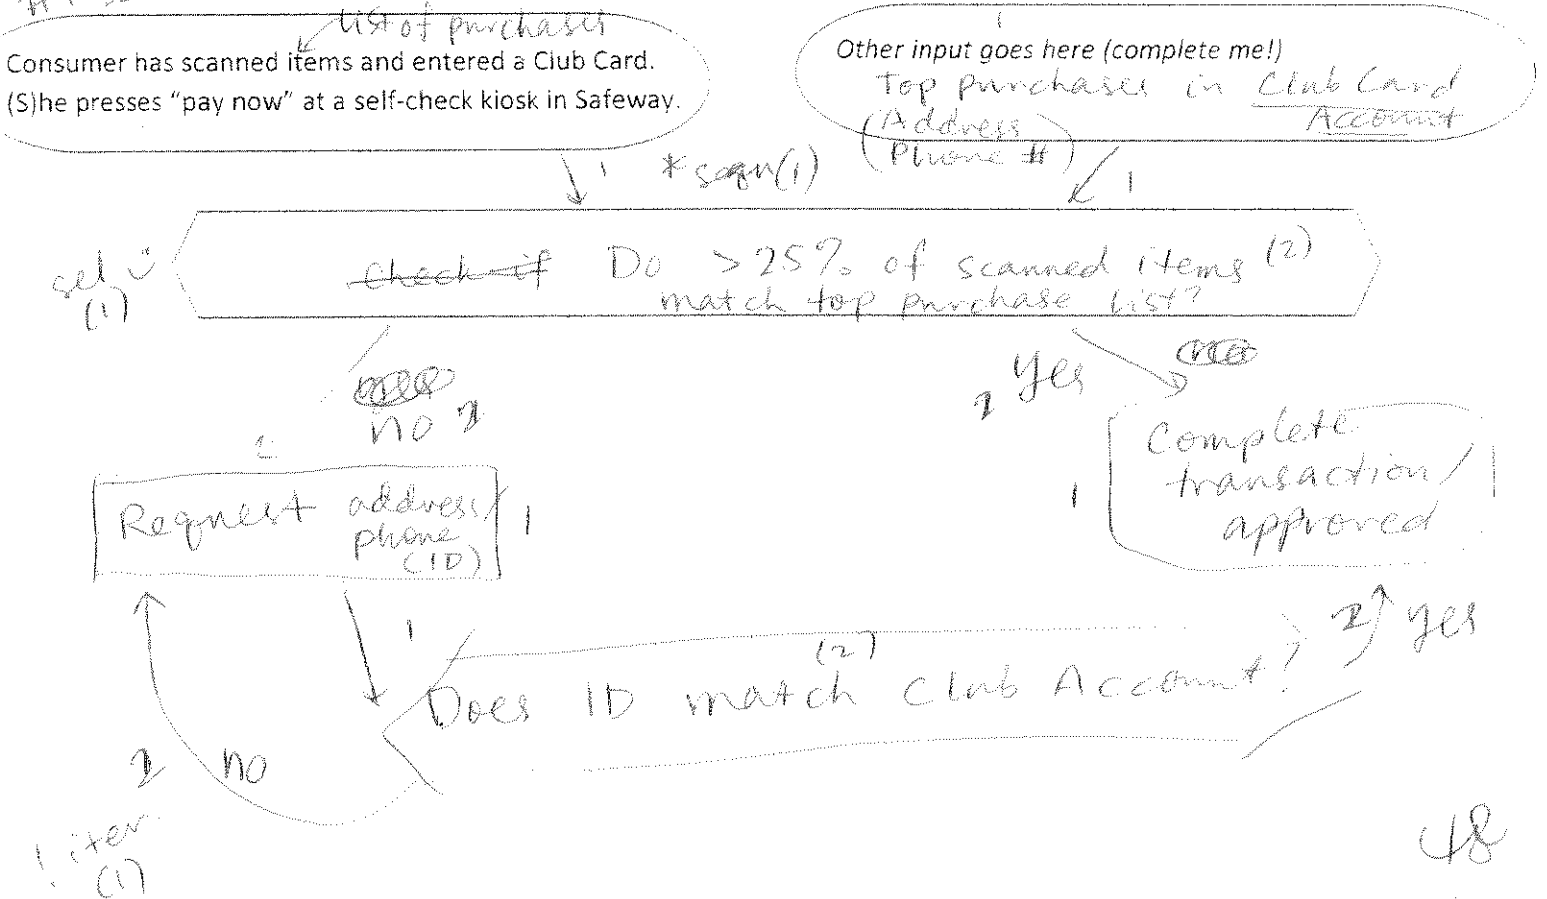 list of purchases
Consumer has scanned items and entered a Club Card.
(S)he presses “pay now” at a self-check kiosk in Safeway.
1
Other input goes here (complete me!)
Top purchases in Club Card
Account
(Address
Phone #)
1
*seqn(1)
1
sel
(1)
Check if Do >25% of scanned items (2)
match top purchase list?
no
Yes
Request address/
phone
(ID)
1
Complete
transaction/
approved
1
1
Does ID match Club Account?
(2)
yes
no
! iter.
(1)
48